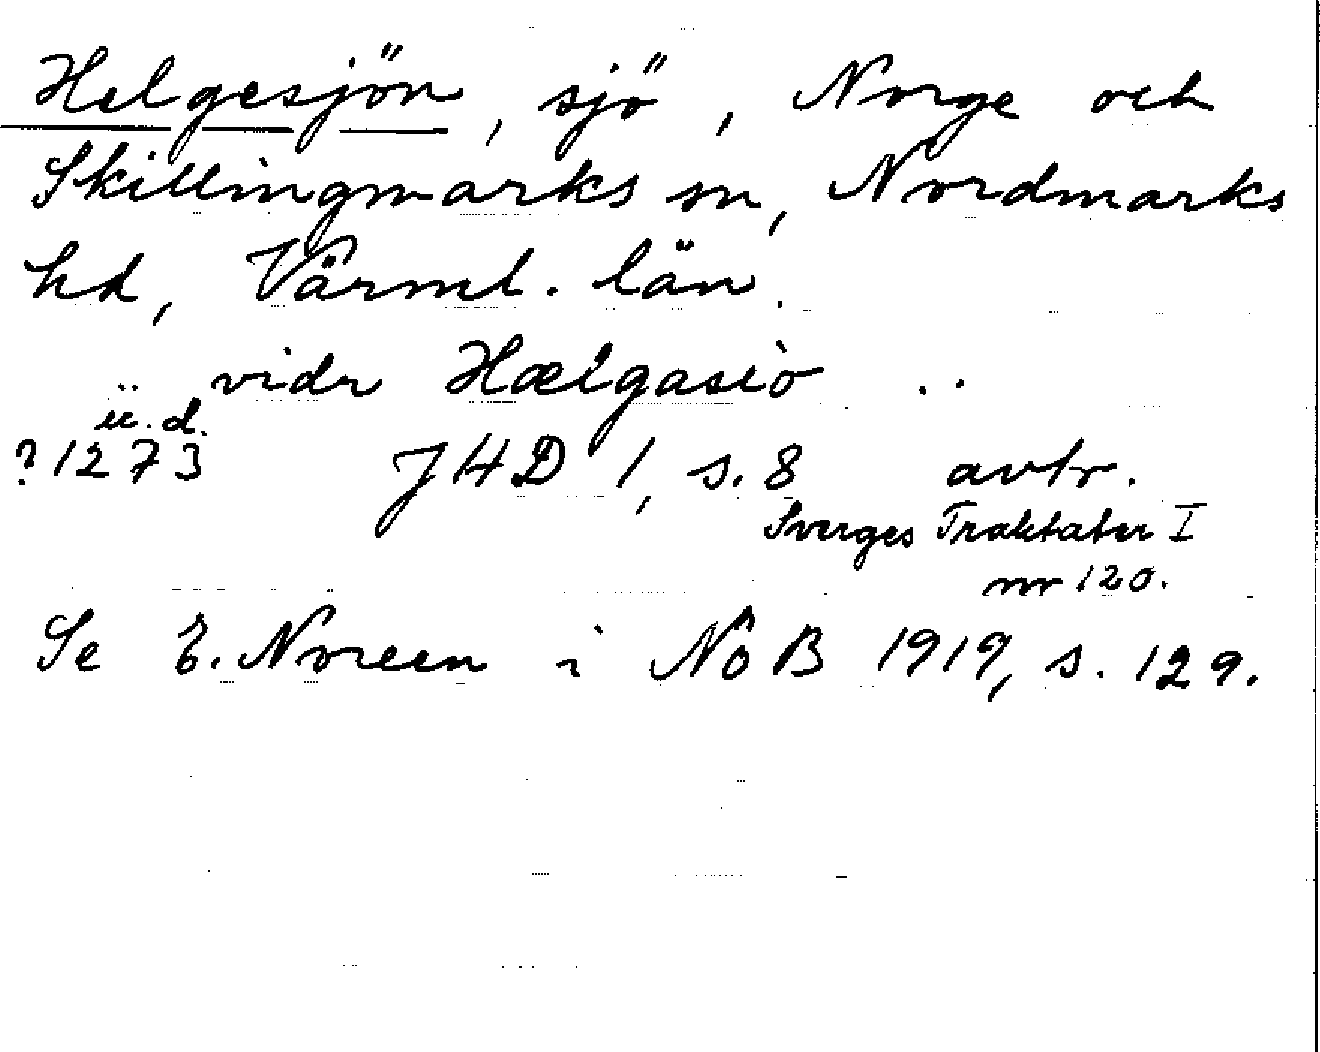 Helgesjön, sjö, Norge och
Skillingmarks sn, Nordmarks
hd, Värml. län.
.. vidr Hælgasiò ..
u. d.
?1273 JHD 1, s. 8 avtr.
Sverges Traktater I
nr 120.
Se E. Noreen i NoB 1919, s. 129.